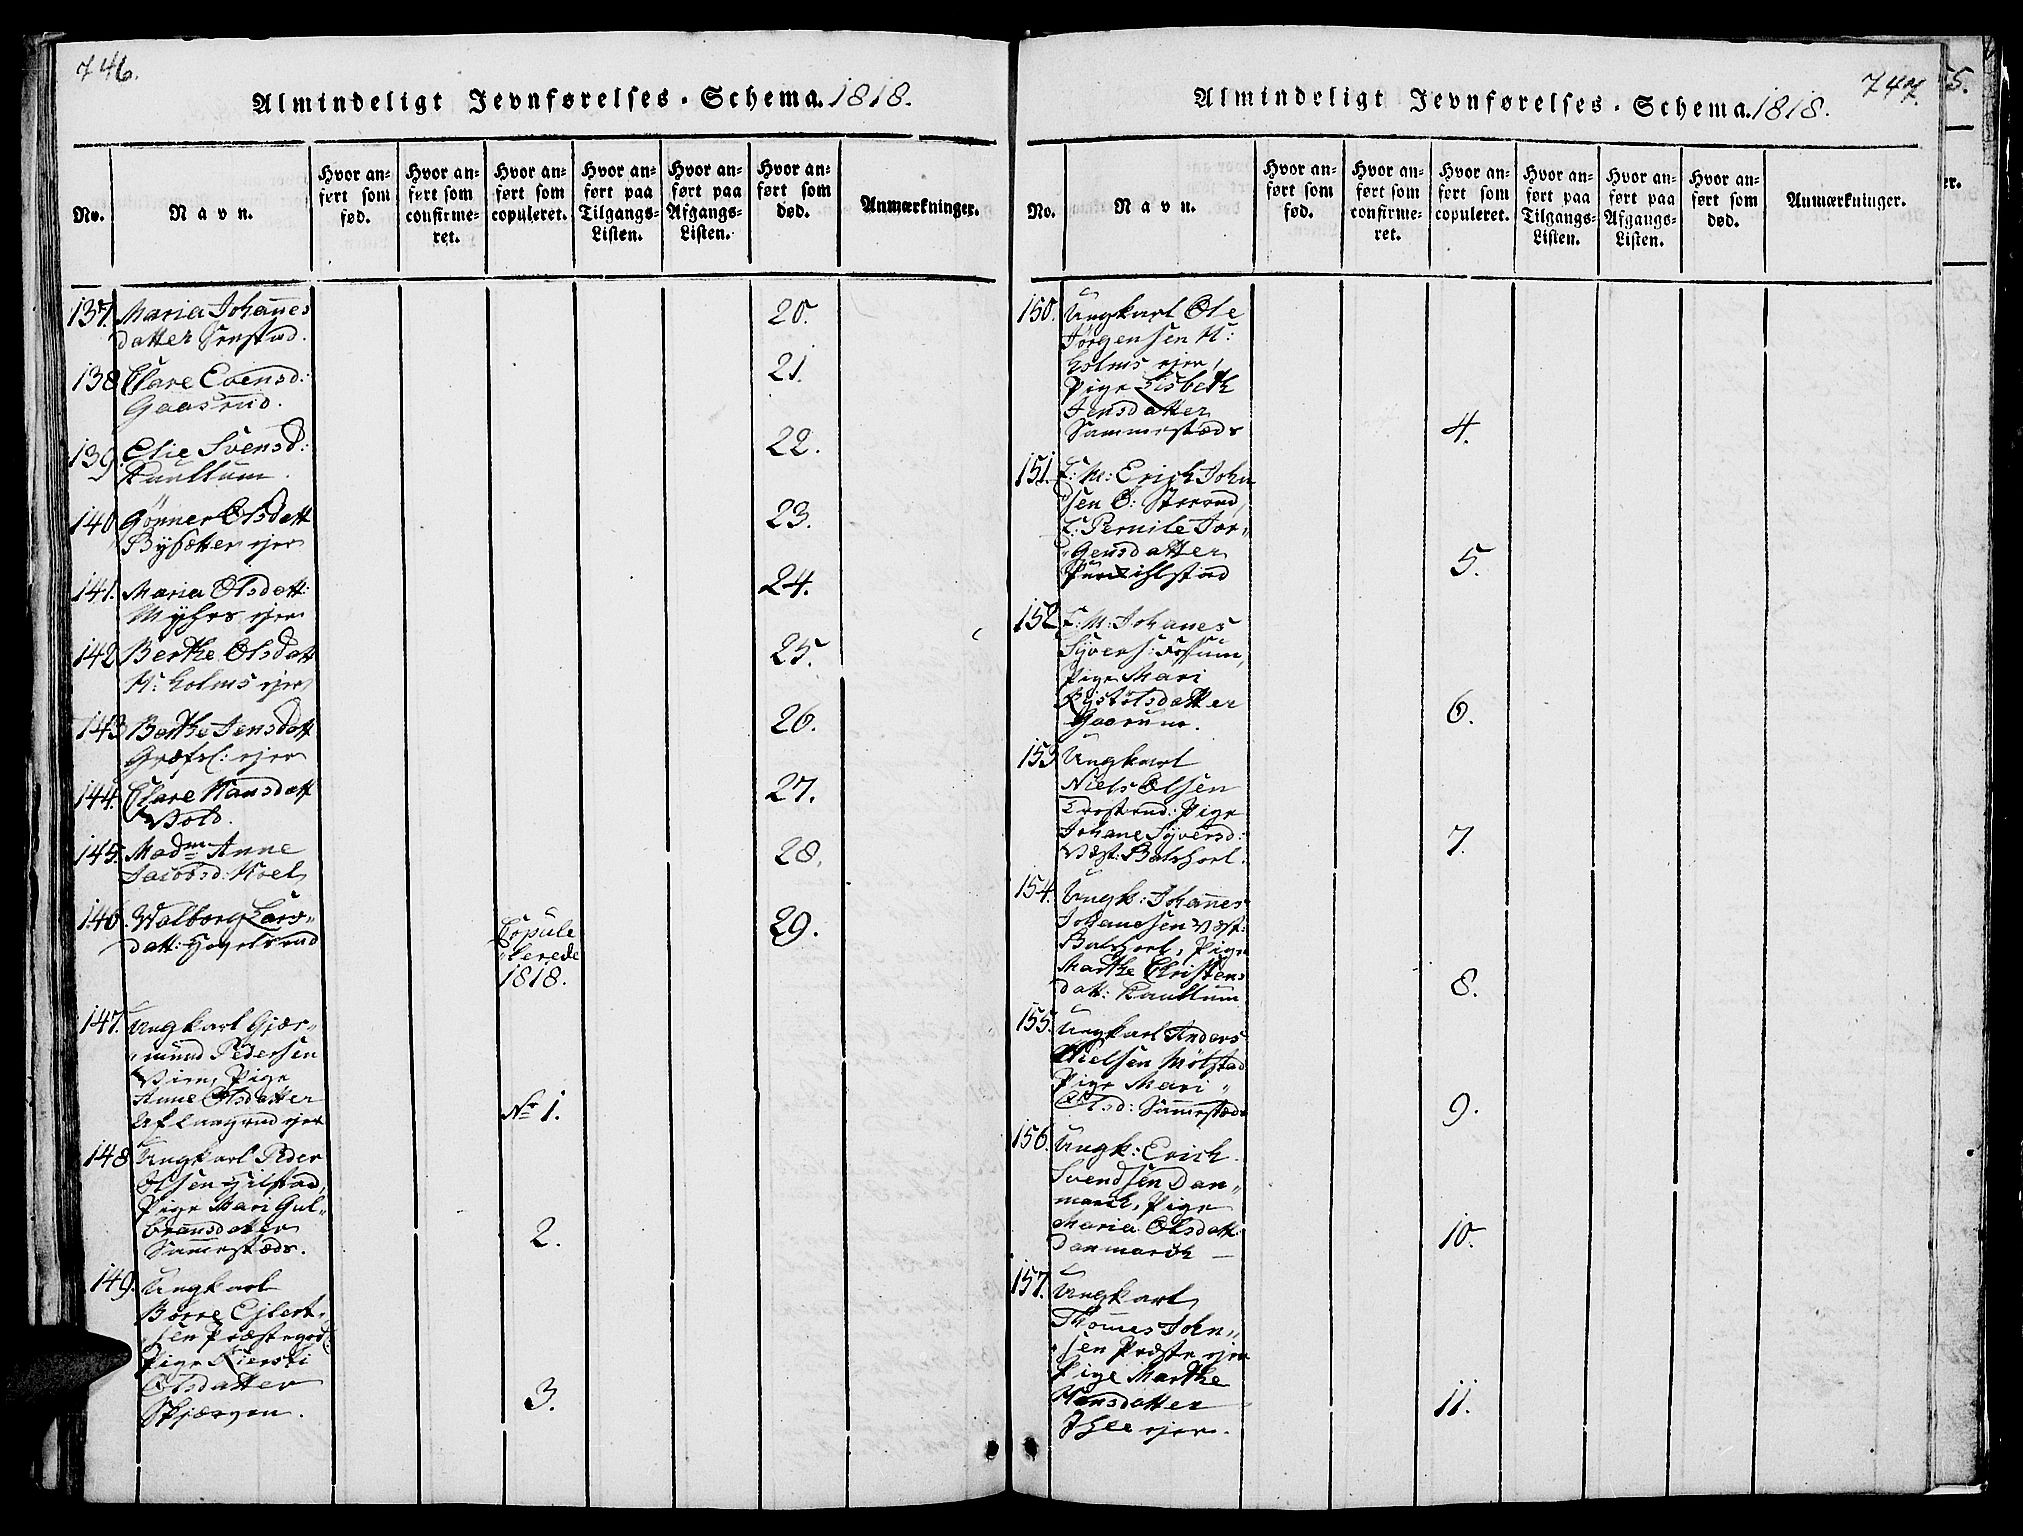 746.
Almindeligt Jevnførelses-Schema. 1818.
No.
Navn.
Hvor an-
ført som
fød.
Hvor an-
ført som
confirme-
ret.
Hvor an-
ført som
copuleret.
Hvor an-
ført paa
Tilgangs-
Listen.
Hvor an-
ført paa
Afgangs-
Listen.
Hvor an-
ført som
død.
Anmærkninger.
137. Maria Johannes
datter 20.
138 Clare Evensd:
Gaasrud. 21.
139 Elie Svensd:
Kaullum. 22.
140 Gønner Olsdatt
Bysætter ejer 23.
141. Maria Olsdatt:
Myhrs ejer 24.
142 Berthe Olsdatt
N: Holms ejer 25.
143 Berthe Jensdatt
ejer 26.
144. Clare Hansdatt
Vold. 27.
145. Madme Anne
Jacobsd: Koel 28.
146. Walborg Lars-
datt: Hovelsrud 29.
Copule
lerede
1818.
147. Ungkarl Gjær-
mund Pedersen
Pige
Anne Olsdatter
ejer No 1.
148 Ungkarl Peder
Olsen Hilstad,
Pige Mari Gul-
bransdatter
Sammestæds. 2.
149. Ungkarl
Børre Ejlert-
sen Præstegrd:
Pige Kiersti
Olsdatter
Skjærven. 3.
747.
Almindeligt Jevnførelses-Schema. 1818.
No.
Navn.
Hvor an-
ført som
fød.
Hvor an-
ført som
confirme-
ret.
Hvor an-
ført som
copuleret.
Hvor an-
ført paa
Tilgangs-
Listen.
Hvor an-
ført paa
Afgangs-
Listen.
Hvor an-
ført som
død.
Anmærkninger.
150. Ungkarl Ole
Jørgensen N:
Holms ejer,
Pige Lisbeth
Jensdatter
Sammestæds 4.
151. E: M: Erich John
sen Ø: Strand,
E: Pernile Jør-
gensdatter
5.
152 E: M: Johanes
Syvers: Fossum,
Pige Mari
Kystolsdatter
Gaarum. 6.
153 Ungkarl
Niels Olsen
Pige
Johane Syversd:
Væst: Balshoel. 7.
154. Ungk: Johannes
Johanesen Væst:
Balshoel, Pige
Marthe Christens
datt: Kaullum 8.
155. Ungkarl Anders
Nielsen Mølstad
Pige Mari
Olsd: Samestæds 9.
156. Ungk: Erich
Svendsen Dan-
march, Pige
Maria Olsdatt:
Danmarch 10.
157. Ungkarl
Thomes John-
sen Præste ejer
Pige Marthe
Hansdatter
ejer. 11.